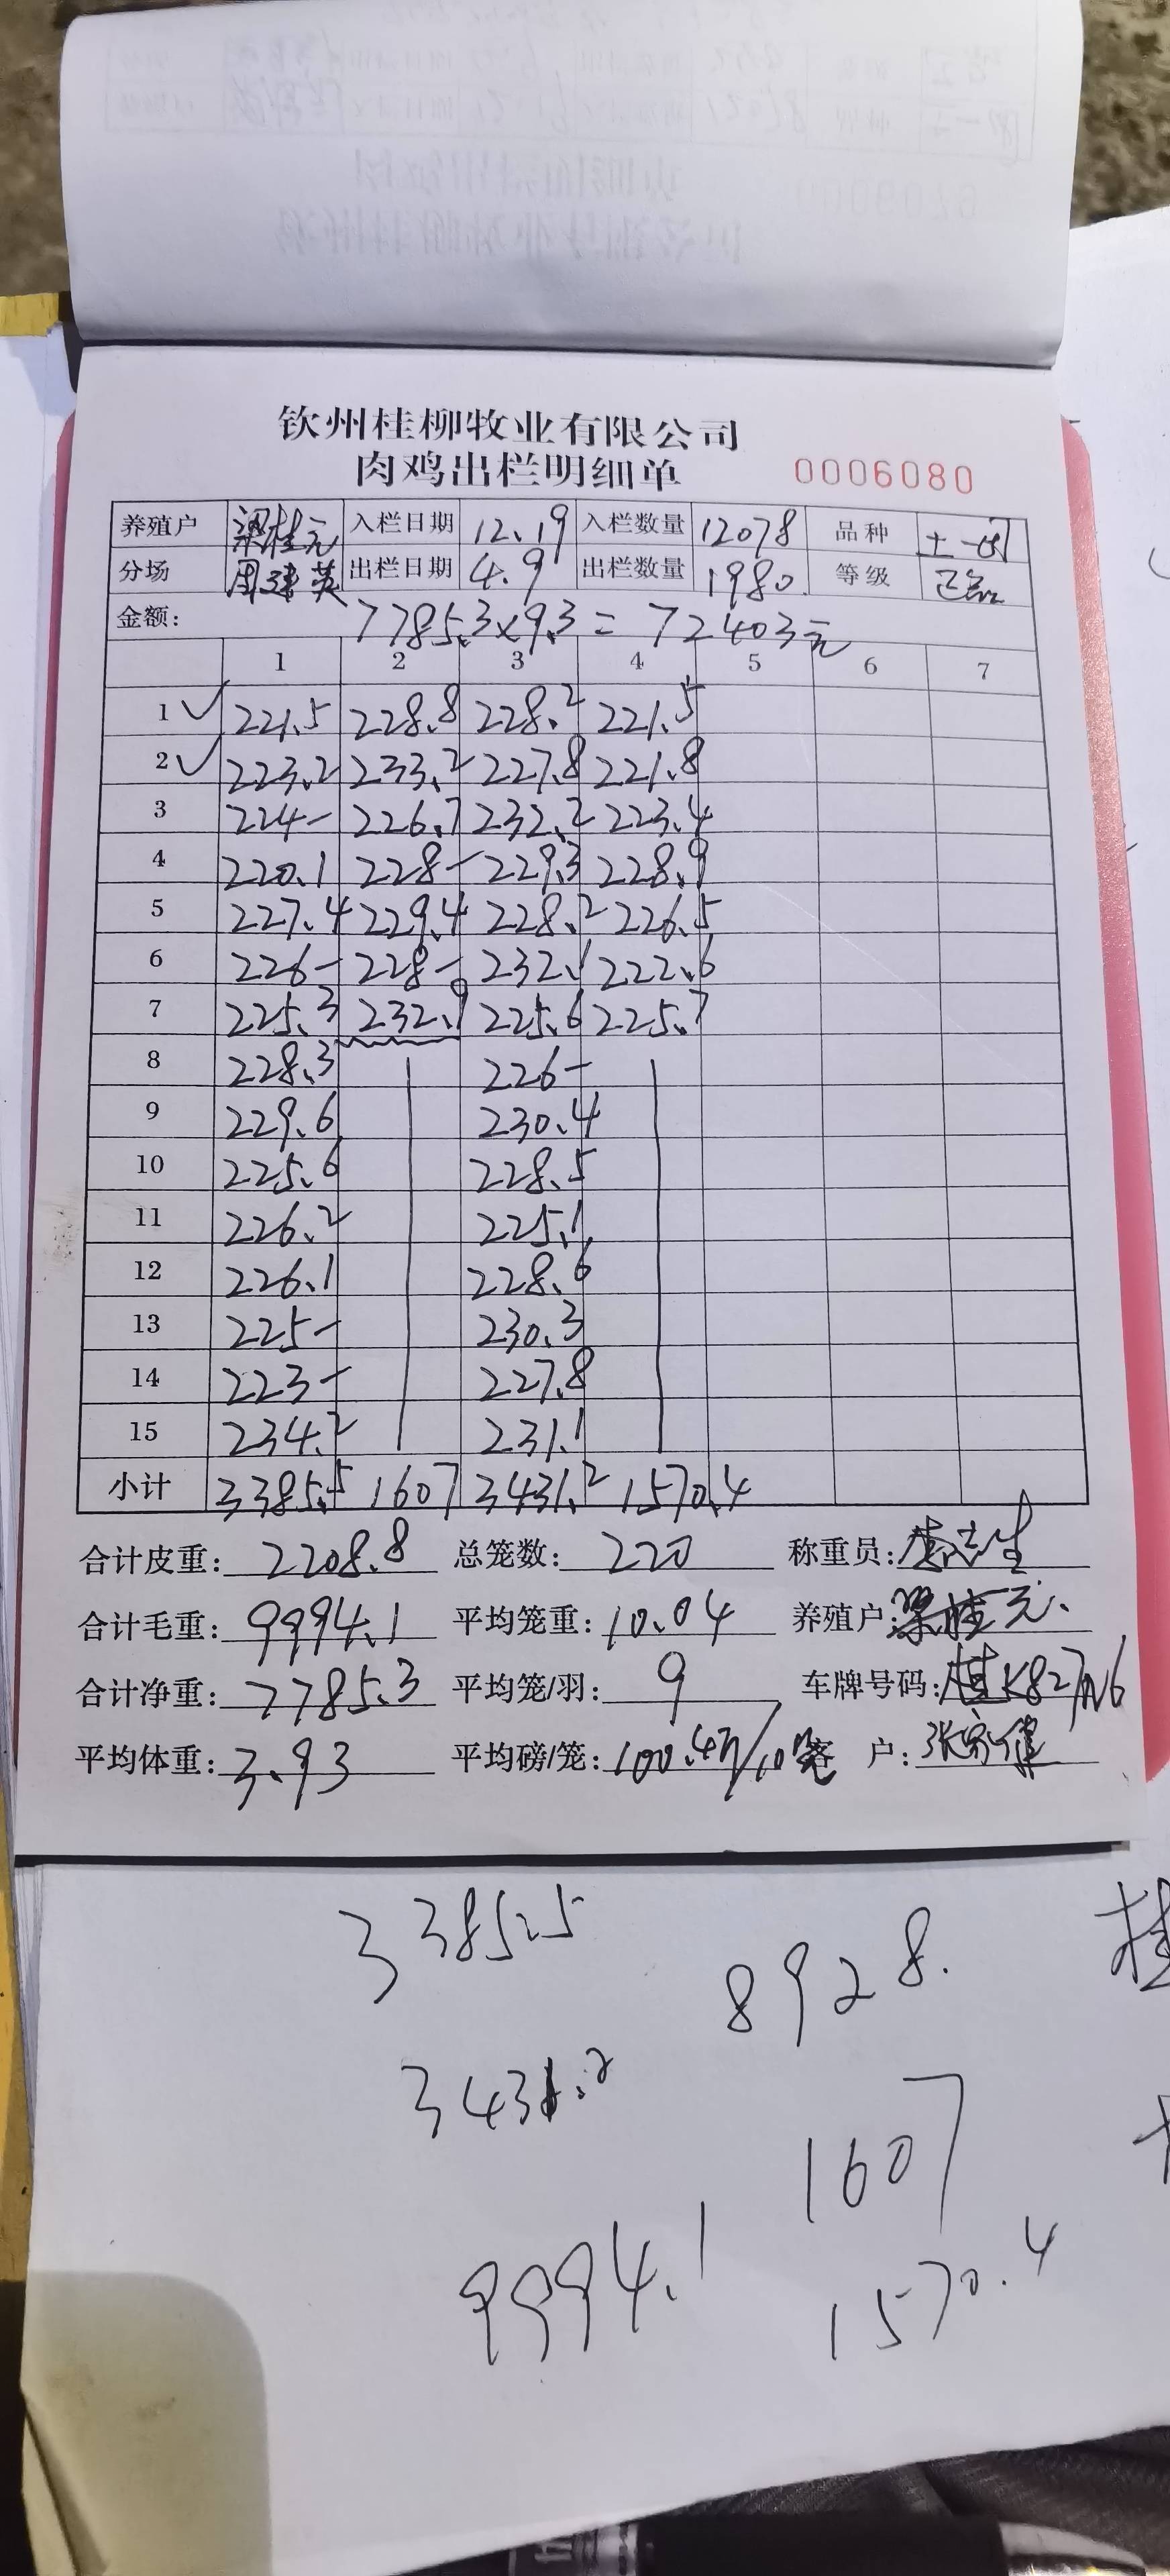 钦州桂柳牧业有限公司
肉鸡出栏明细单 0006080
养殖户 梁桂元 入栏日期 12.19 入栏数量 12078 品种 土一
分场 周建英 出栏日期 4.9 出栏数量 1980. 等级 正品
金额: 7785.3×9.3=72403元
1 2 3 4 5 6 7
1 ✓ 221.5 228.8 228.2 221.5
2 ✓ 223.2 233.2 227.8 221.8
3 224- 226.7 232.2 223.4
4 220.1 228- 229.3 228.9
5 227.4 229.4 228.2 226.5
6 226- 228- 232.1 222.6
7 225.3 232.9 225.6 225.7
8 228.3 226-
9 229.6 230.4
10 225.6 228.5
11 226.2 225.1
12 226.1 228.6
13 225- 230.3
14 223- 227.8
15 234.2 231.1
小计 3385.5 1607 3431.2 1570.4
合计皮重: 2208.8 总笼数: 220 称重员: 李志生
合计毛重: 9994.1 平均笼重: 10.04 养殖户: 梁桂元.
合计净重: 7785.3 平均笼/羽: 9 车牌号码: 桂K827
平均体重: 3.93 平均磅/笼: 100.4/10笼 客 户: 张
3385.5
8928.
桂
3431.2
1607
9994.1
1570.4